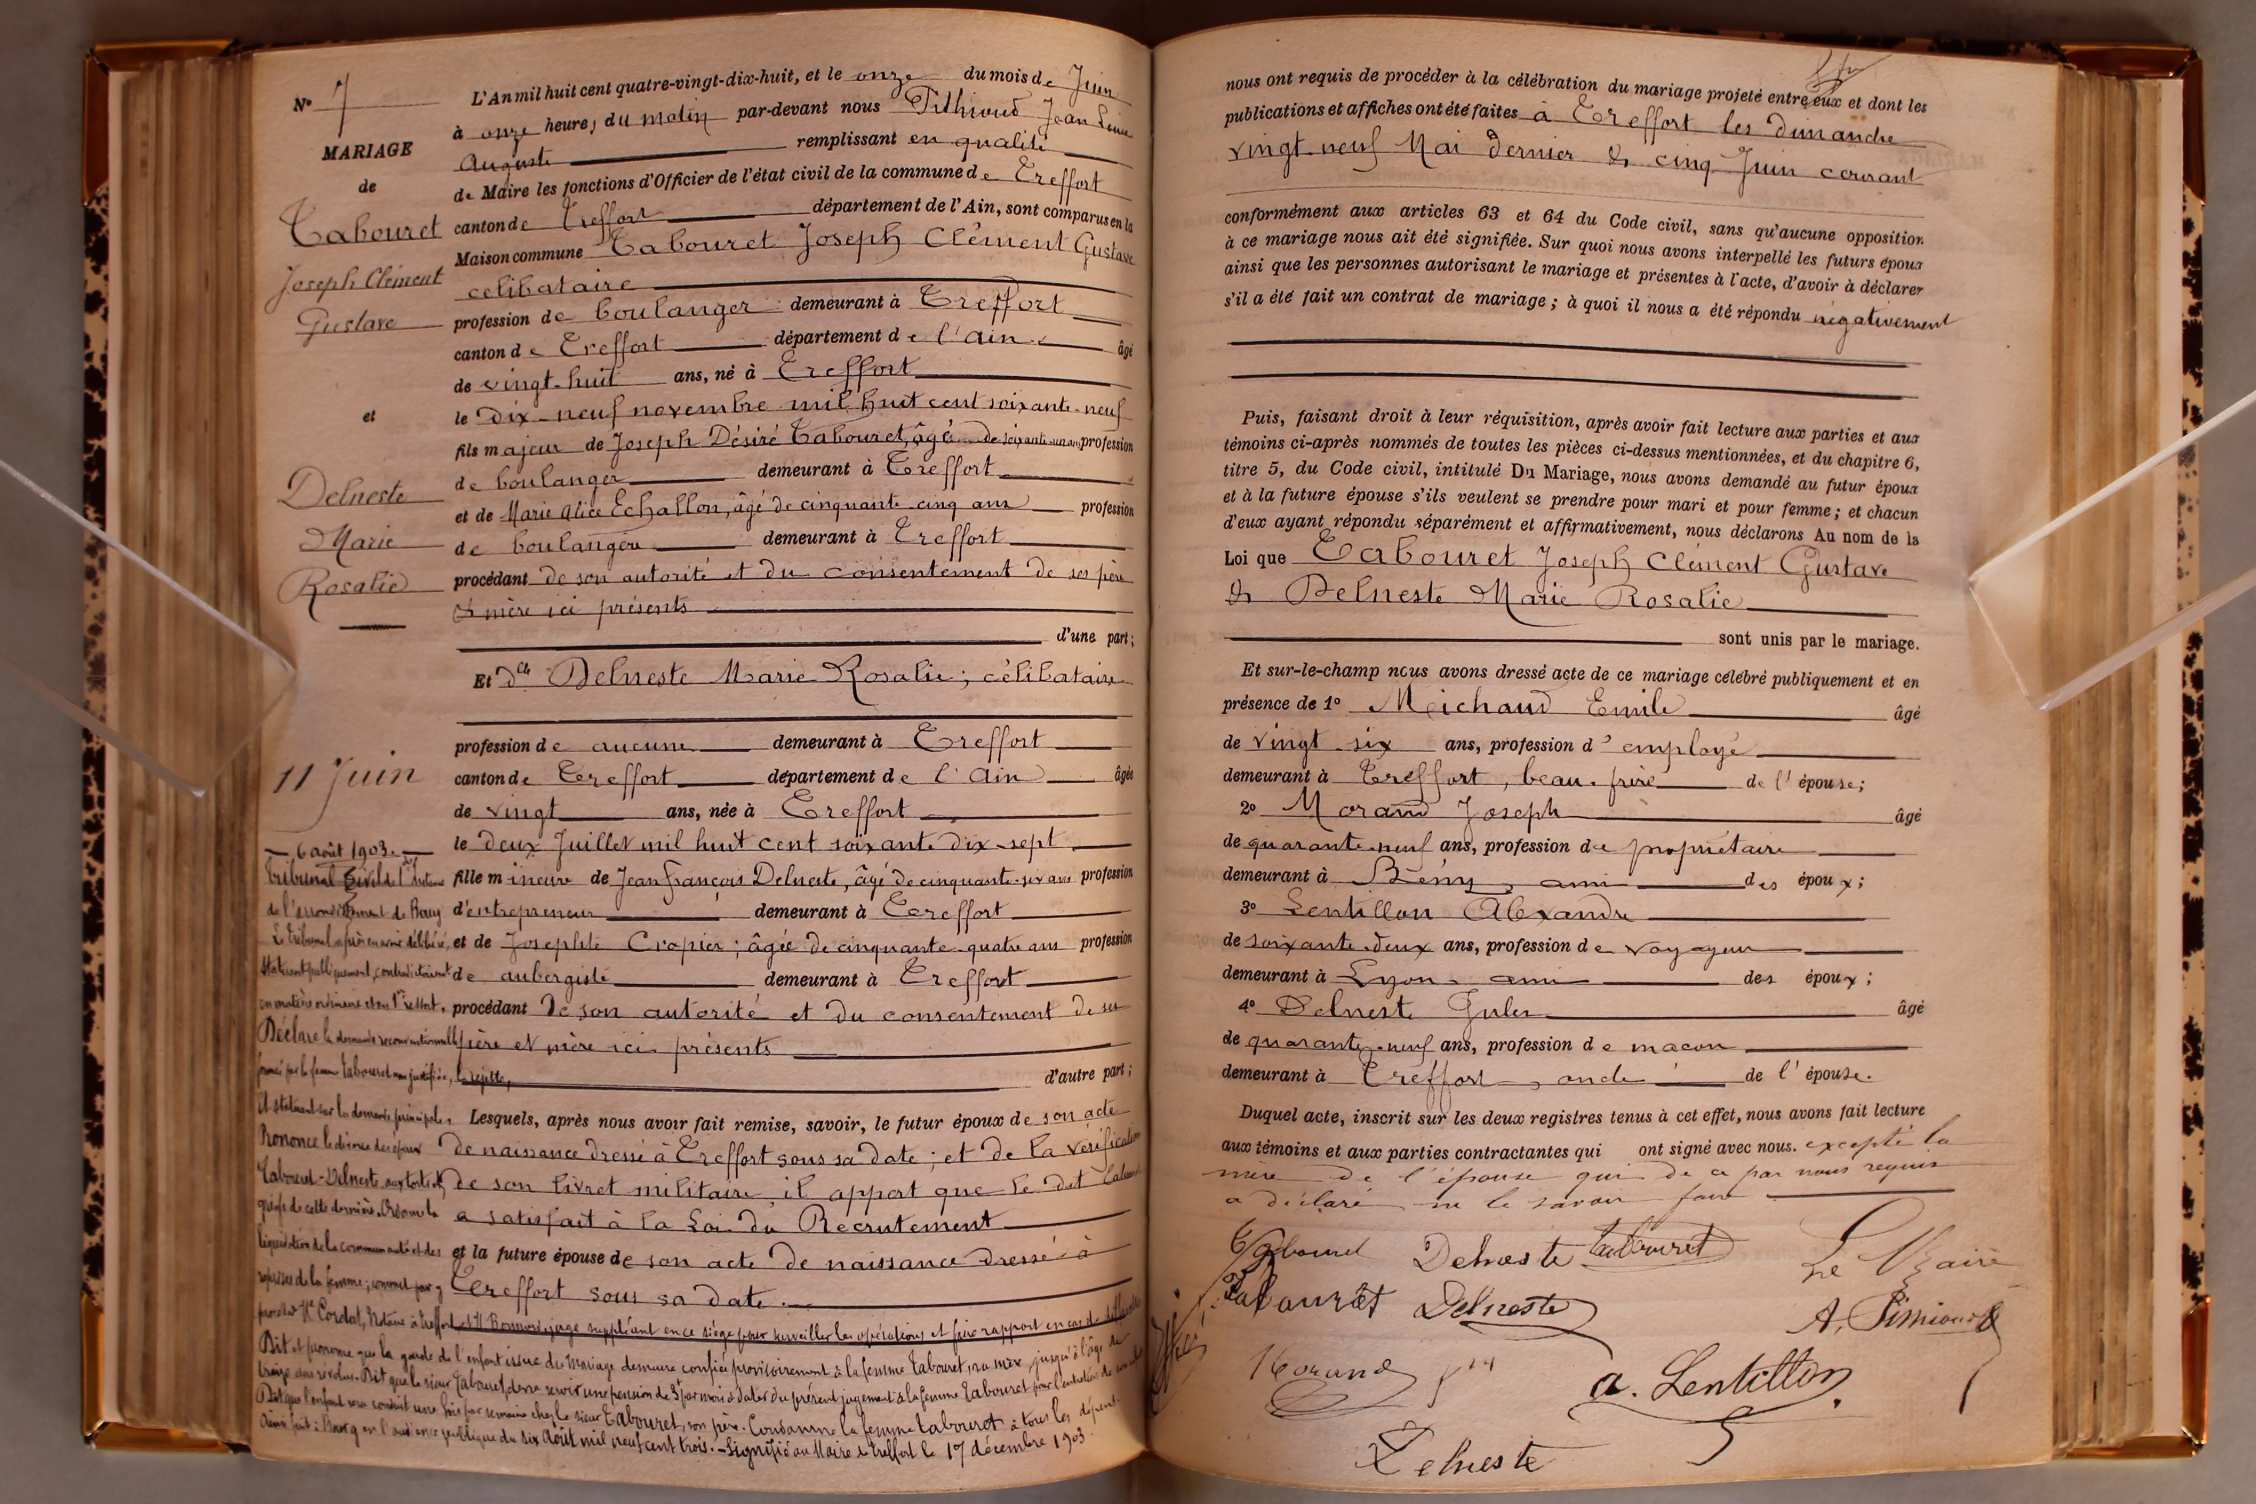 N° 7
MARIAGE
de
Tabouret
Joseph Clément
Gustave
et
Delneste
Marie
Rosalie
11 Juin
L'An mil huit cent quatre-vingt-dix-huit, et le onze du mois de Juin
à onze heures du matin par-devant nous Jean
Auguste remplissant en qualité
de Maire les fonctions d'Officier de l'état civil de la commune de Treffort
canton de Treffort département de l'Ain, sont comparus en la
Maison commune Tabouret Joseph Clément Gustave
célibataire
profession de boulanger demeurant à Treffort
canton de Treffort département de l'Ain âgé
de vingt-huit ans, né à Treffort
le dix-neuf novembre mil huit cent soixante-neuf
fils majeur de Joseph Désiré Tabouret, âgé de soixante-un ans profession
de boulanger demeurant à Treffort
et de Marie Alice Echallon, âgé de cinquante-cinq ans profession
de boulangère demeurant à Treffort
procédant de son autorité et du consentement de ses père
& mère ici présents
d'une part;
Et dlle Delneste Marie Rosalie; célibataire
profession de aucune demeurant à Treffort
canton de Treffort département de l'Ain âgée
de vingt ans, née à Treffort
le deux Juillet mil huit cent soixante dix-sept
fille mineure de Jean François Delneste, âgé de cinquante-six ans profession
d'entrepreneur demeurant à Treffort
et de Josephte Cropier; âgée de cinquante-quatre ans profession
de aubergiste demeurant à Treffort
procédant de son autorité et du consentement de ses
père et mère ici présents
d'autre part;
Lesquels, après nous avoir fait remise, savoir, le futur époux de son acte
de naissance dressé à Treffort sous sa date; et de la vérification
de son livret militaire, il appert que le dit Tabouret
a satisfait à la Loi du Recrutement
et la future épouse de son acte de naissance dressé à
Treffort sous sa date.
6 août 1903.
Tribunal Civil de 1re Instance
de l'arrondissement de Bourg
Le Tribunal après en avoir délibéré,
statuant publiquement, contradictoirement
en matière ordinaire et en 1er ressort,
Déclare la demande reconventionnelle
formée par la femme Tabouret non justifiée, la rejette,
et statuant sur la demande principale,
Prononce le divorce des époux
Tabouret-Delneste aux torts et
griefs de cette dernière. Ordonne la
liquidation de la communauté et des
reprises de la femme; commet pour y
procéder Me Cordat, Notaire à Treffort et M. juge suppléant en ce siège pour surveiller les opérations et faire rapport en cas de difficultés
Dit et prononce que la garde de l'enfant issue du mariage demeure confiée provisoirement à la femme Tabouret, sa mère, jusqu'à l'âge de
treize ans révolus. Dit que le sieur Tabouret devra servir une pension de par mois à dater du présent jugement à la femme Tabouret pour l'entretien de son enfant
Dit que l'enfant sera conduit une fois par semaine chez le sieur Tabouret, son père. Condamne la femme Tabouret à tous les dépens.
Ainsi fait à Bourg en l'audience publique du six Août mil neuf cent trois. - Signifié au Maire de Treffort le 17 décembre 1903.
nous ont requis de procéder à la célébration du mariage projeté entre eux et dont les
publications et affiches ont été faites à Treffort les dimanche
vingt-neuf Mai dernier & cinq Juin courant
conformément aux articles 63 et 64 du Code civil, sans qu'aucune opposition
à ce mariage nous ait été signifiée. Sur quoi nous avons interpellé les futurs époux
ainsi que les personnes autorisant le mariage et présentes à l'acte, d'avoir à déclarer
s'il a été fait un contrat de mariage; à quoi il nous a été répondu négativement
Puis, faisant droit à leur réquisition, après avoir fait lecture aux parties et aux
témoins ci-après nommés de toutes les pièces ci-dessus mentionnées, et du chapitre 6,
titre 5, du Code civil, intitulé Du Mariage, nous avons demandé au futur époux
et à la future épouse s'ils veulent se prendre pour mari et pour femme; et chacun
d'eux ayant répondu séparément et affirmativement, nous déclarons Au nom de la
Loi que Tabouret Joseph Clément Gustave
& Delneste Marie Rosalie
sont unis par le mariage.
Et sur-le-champ nous avons dressé acte de ce mariage célébré publiquement et en
présence de 1° Michaud Emile âgé
de vingt-six ans, profession d'employé
demeurant à Treffort, beau-frère de l'épouse;
2° Morand Joseph âgé
de quarante-neuf ans, profession de propriétaire
demeurant à Bény, ami des époux;
3° Lentillon Alexandre
de soixante-deux ans, profession de voyageur
demeurant à Lyon, ami des époux;
4° Delneste Jules âgé
de quarante-neuf ans, profession de maçon
demeurant à Treffort, oncle de l'épouse.
Duquel acte, inscrit sur les deux registres tenus à cet effet, nous avons fait lecture
aux témoins et aux parties contractantes qui ont signé avec nous. excepté la
mère de l'épouse qui de ce par nous requis
a déclaré ne le savoir faire
G Tabouret Delneste Tabouret Le Maire
Tabouret Delneste
Morand a. Lentillon
Delneste